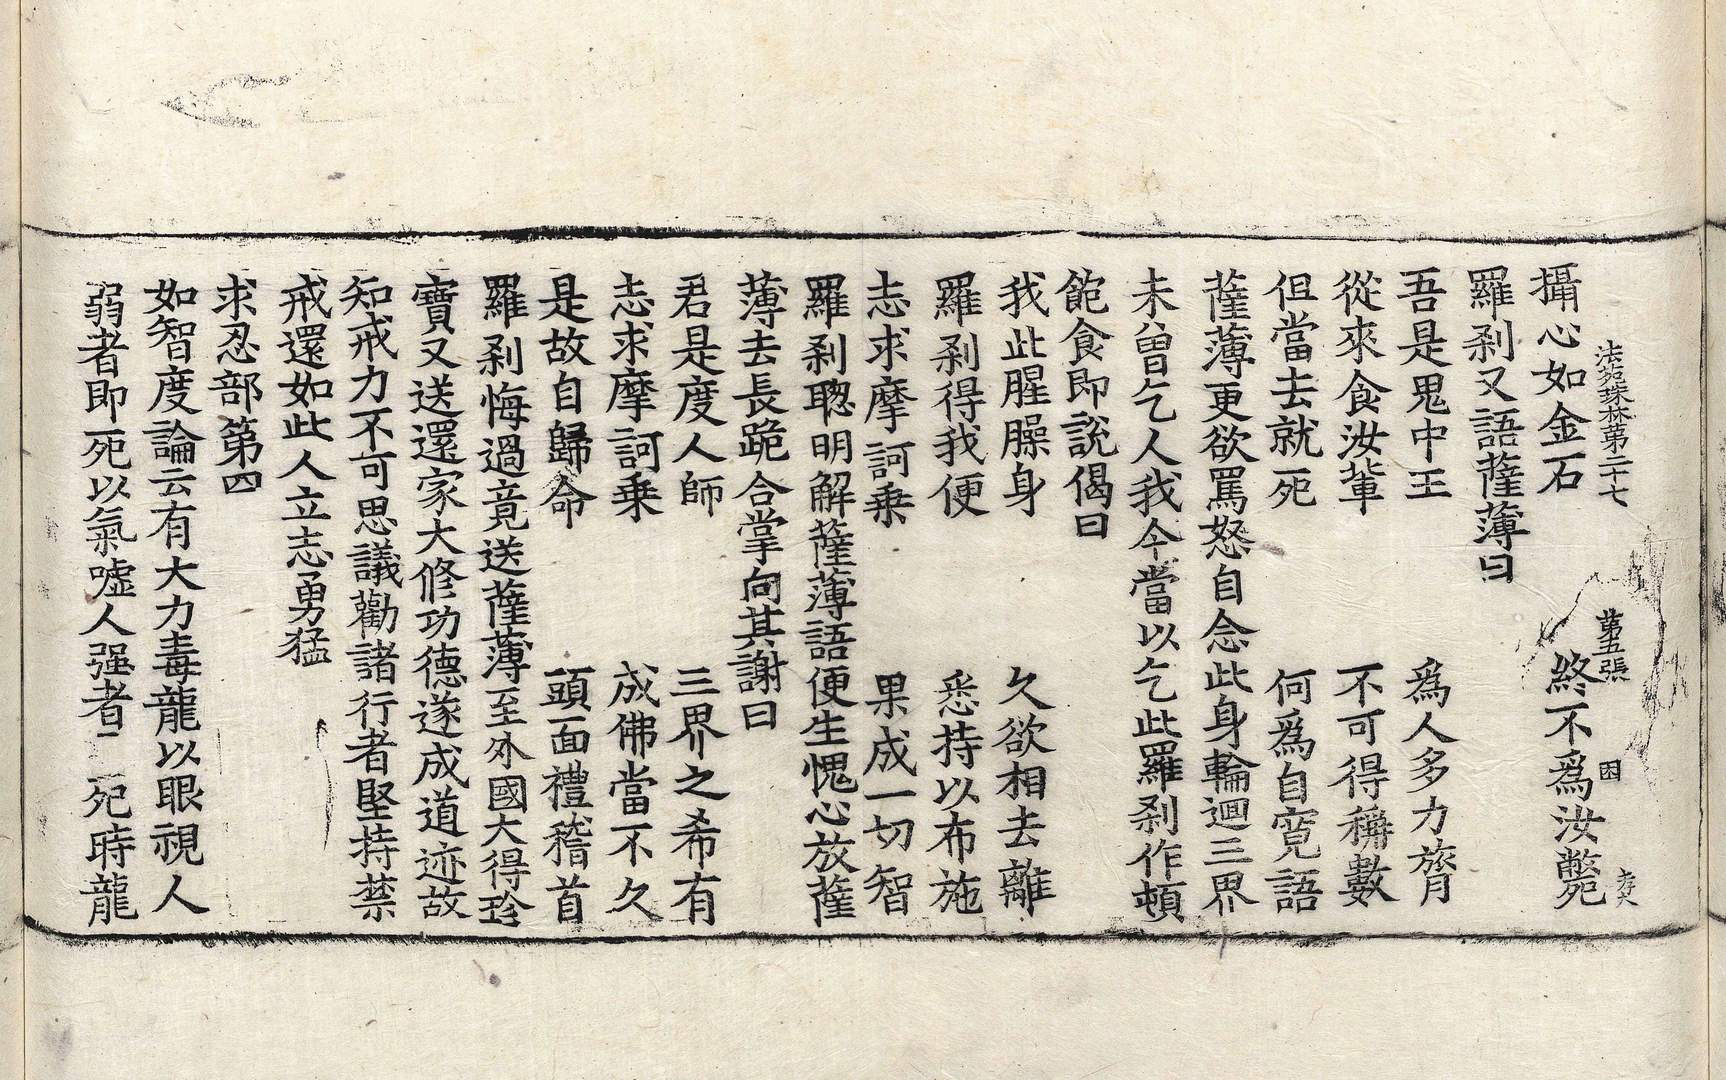 法苑珠林第二十七 第五張 困
攝心如金石 終不爲汝斃
羅刹又語薩薄曰
吾是鬼中王 爲人多力膂
從來食汝輩 不可得稱數
但當去就死 何爲自寬語
薩薄更欲罵怒自念此身輪迴三界
未曽乞人我今當以乞此羅刹作頓
飽食即說偈曰
我此腥臊身 久欲相去離
羅刹得我便 悉持以布施
志求摩訶乗 果成一切智
羅刹聦明解薩薄語便生愧心放薩
薄去長跪合掌向其謝曰
君是度人師 三界之希有
志求摩訶乗 成佛當不久
是故自歸命 頭面禮稽首
羅刹悔過竟送薩薄至外國大得珍
寶又送還家大修功德遂成道迹故
知戒力不可思議勸諸行者堅持禁
戒還如此人立志勇猛
求忍部第四
如智度論云有大力毒龍以眼視人
弱者即死以氣噓人强者 死時龍